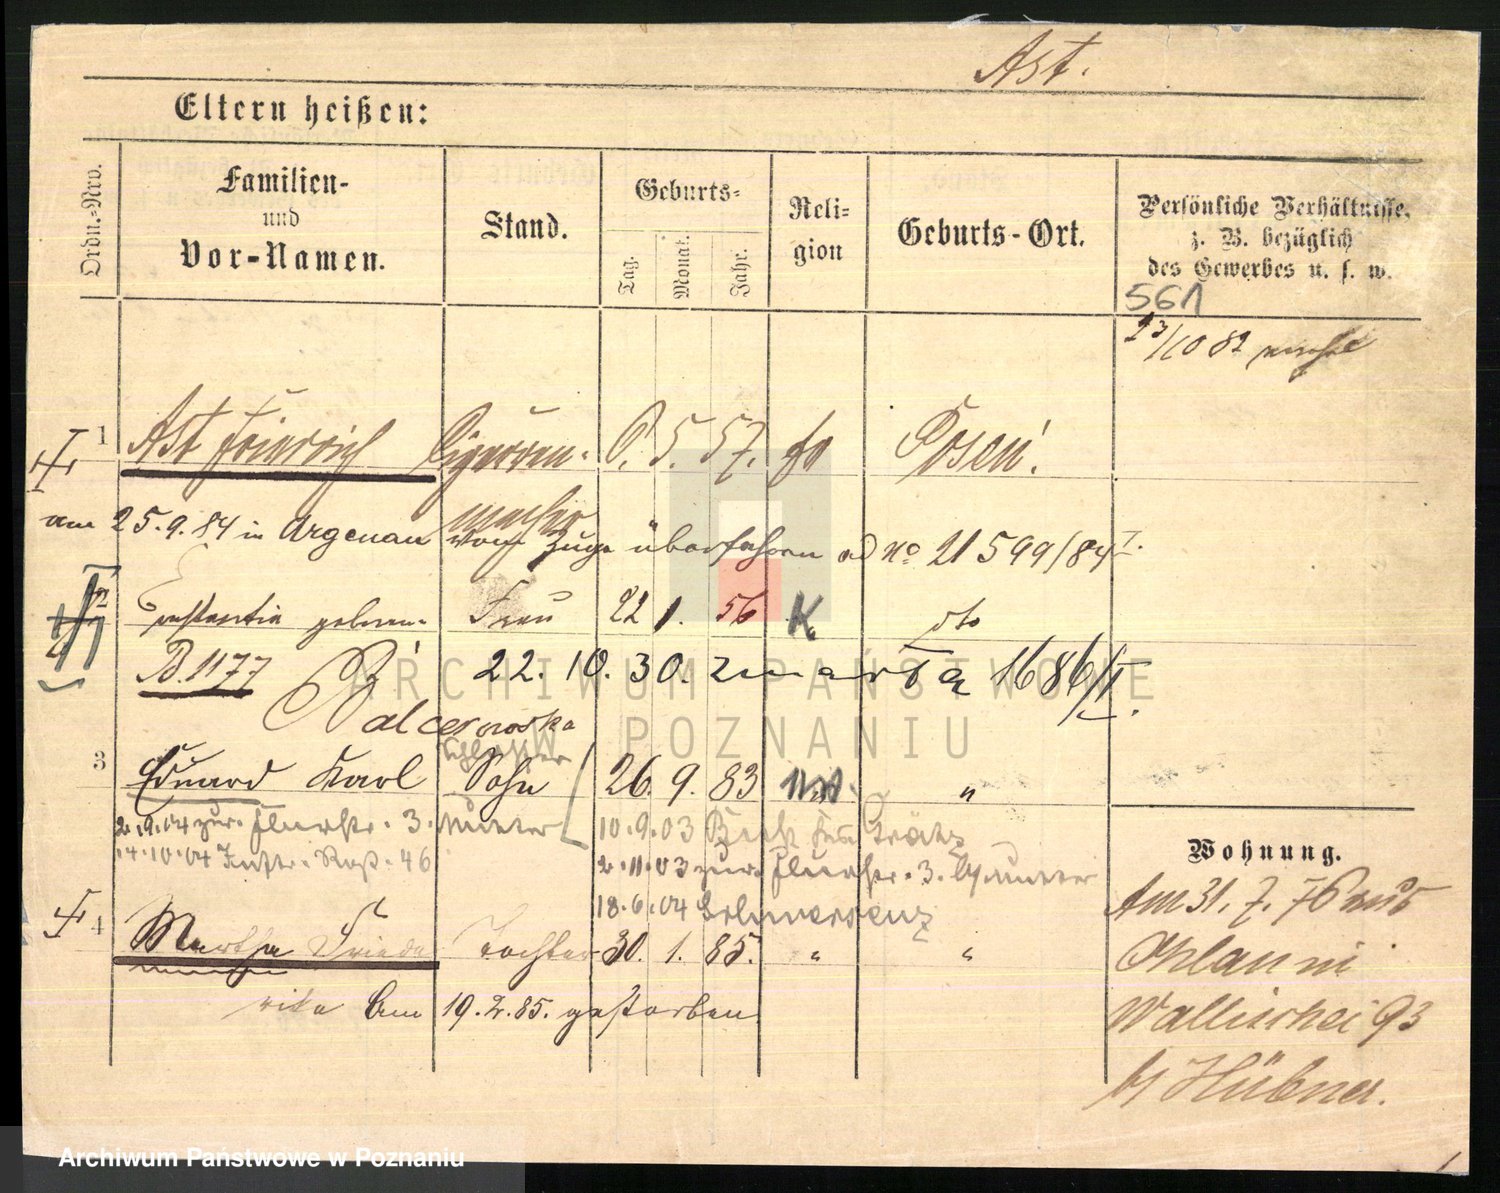 Ast.
Eltern heißen:
Ordn.=Nro.
Familien-
und
Vor-Namen.
Stand.
Geburts=
Tag.
Monat.
Jahr.
Reli=
gion
Geburts-Ort.
Persönliche Verhältnisse,
z. B. bezüglich
des Gewerbes u. s. w.
561
23/10 82
1 Ast Heinrich Cigarren- 6. 5. 57. Posen.
macher
am 25.9.84 in Argenau vom Zuge überfahren ad No 21599/84 I.
2 Constantia geboren- Frau 22 1. 56 K. dto
B.1177 22.10.30. 1686/II.
Balcerowska
3 Eduard Karl Sohn 26. 9. 83 "
2.9.04 zur. Flurstr. 3. Mutter 10.9.03
14.10.04 46 2.11.03 zur. Flurstr. 3. Mutter
18.6.04 Schwersenz
4 Martha Frieda Tochter 30. 1. 85. " "
am 19.2.85. gestorben
Wohnung.
Am 31. 7. 76 aus
Ohlau in
Wallischei 93
b/ Hübner.
ARCHIWUM PAŃSTWOWE
W POZNANIU
Archiwum Państwowe w Poznaniu